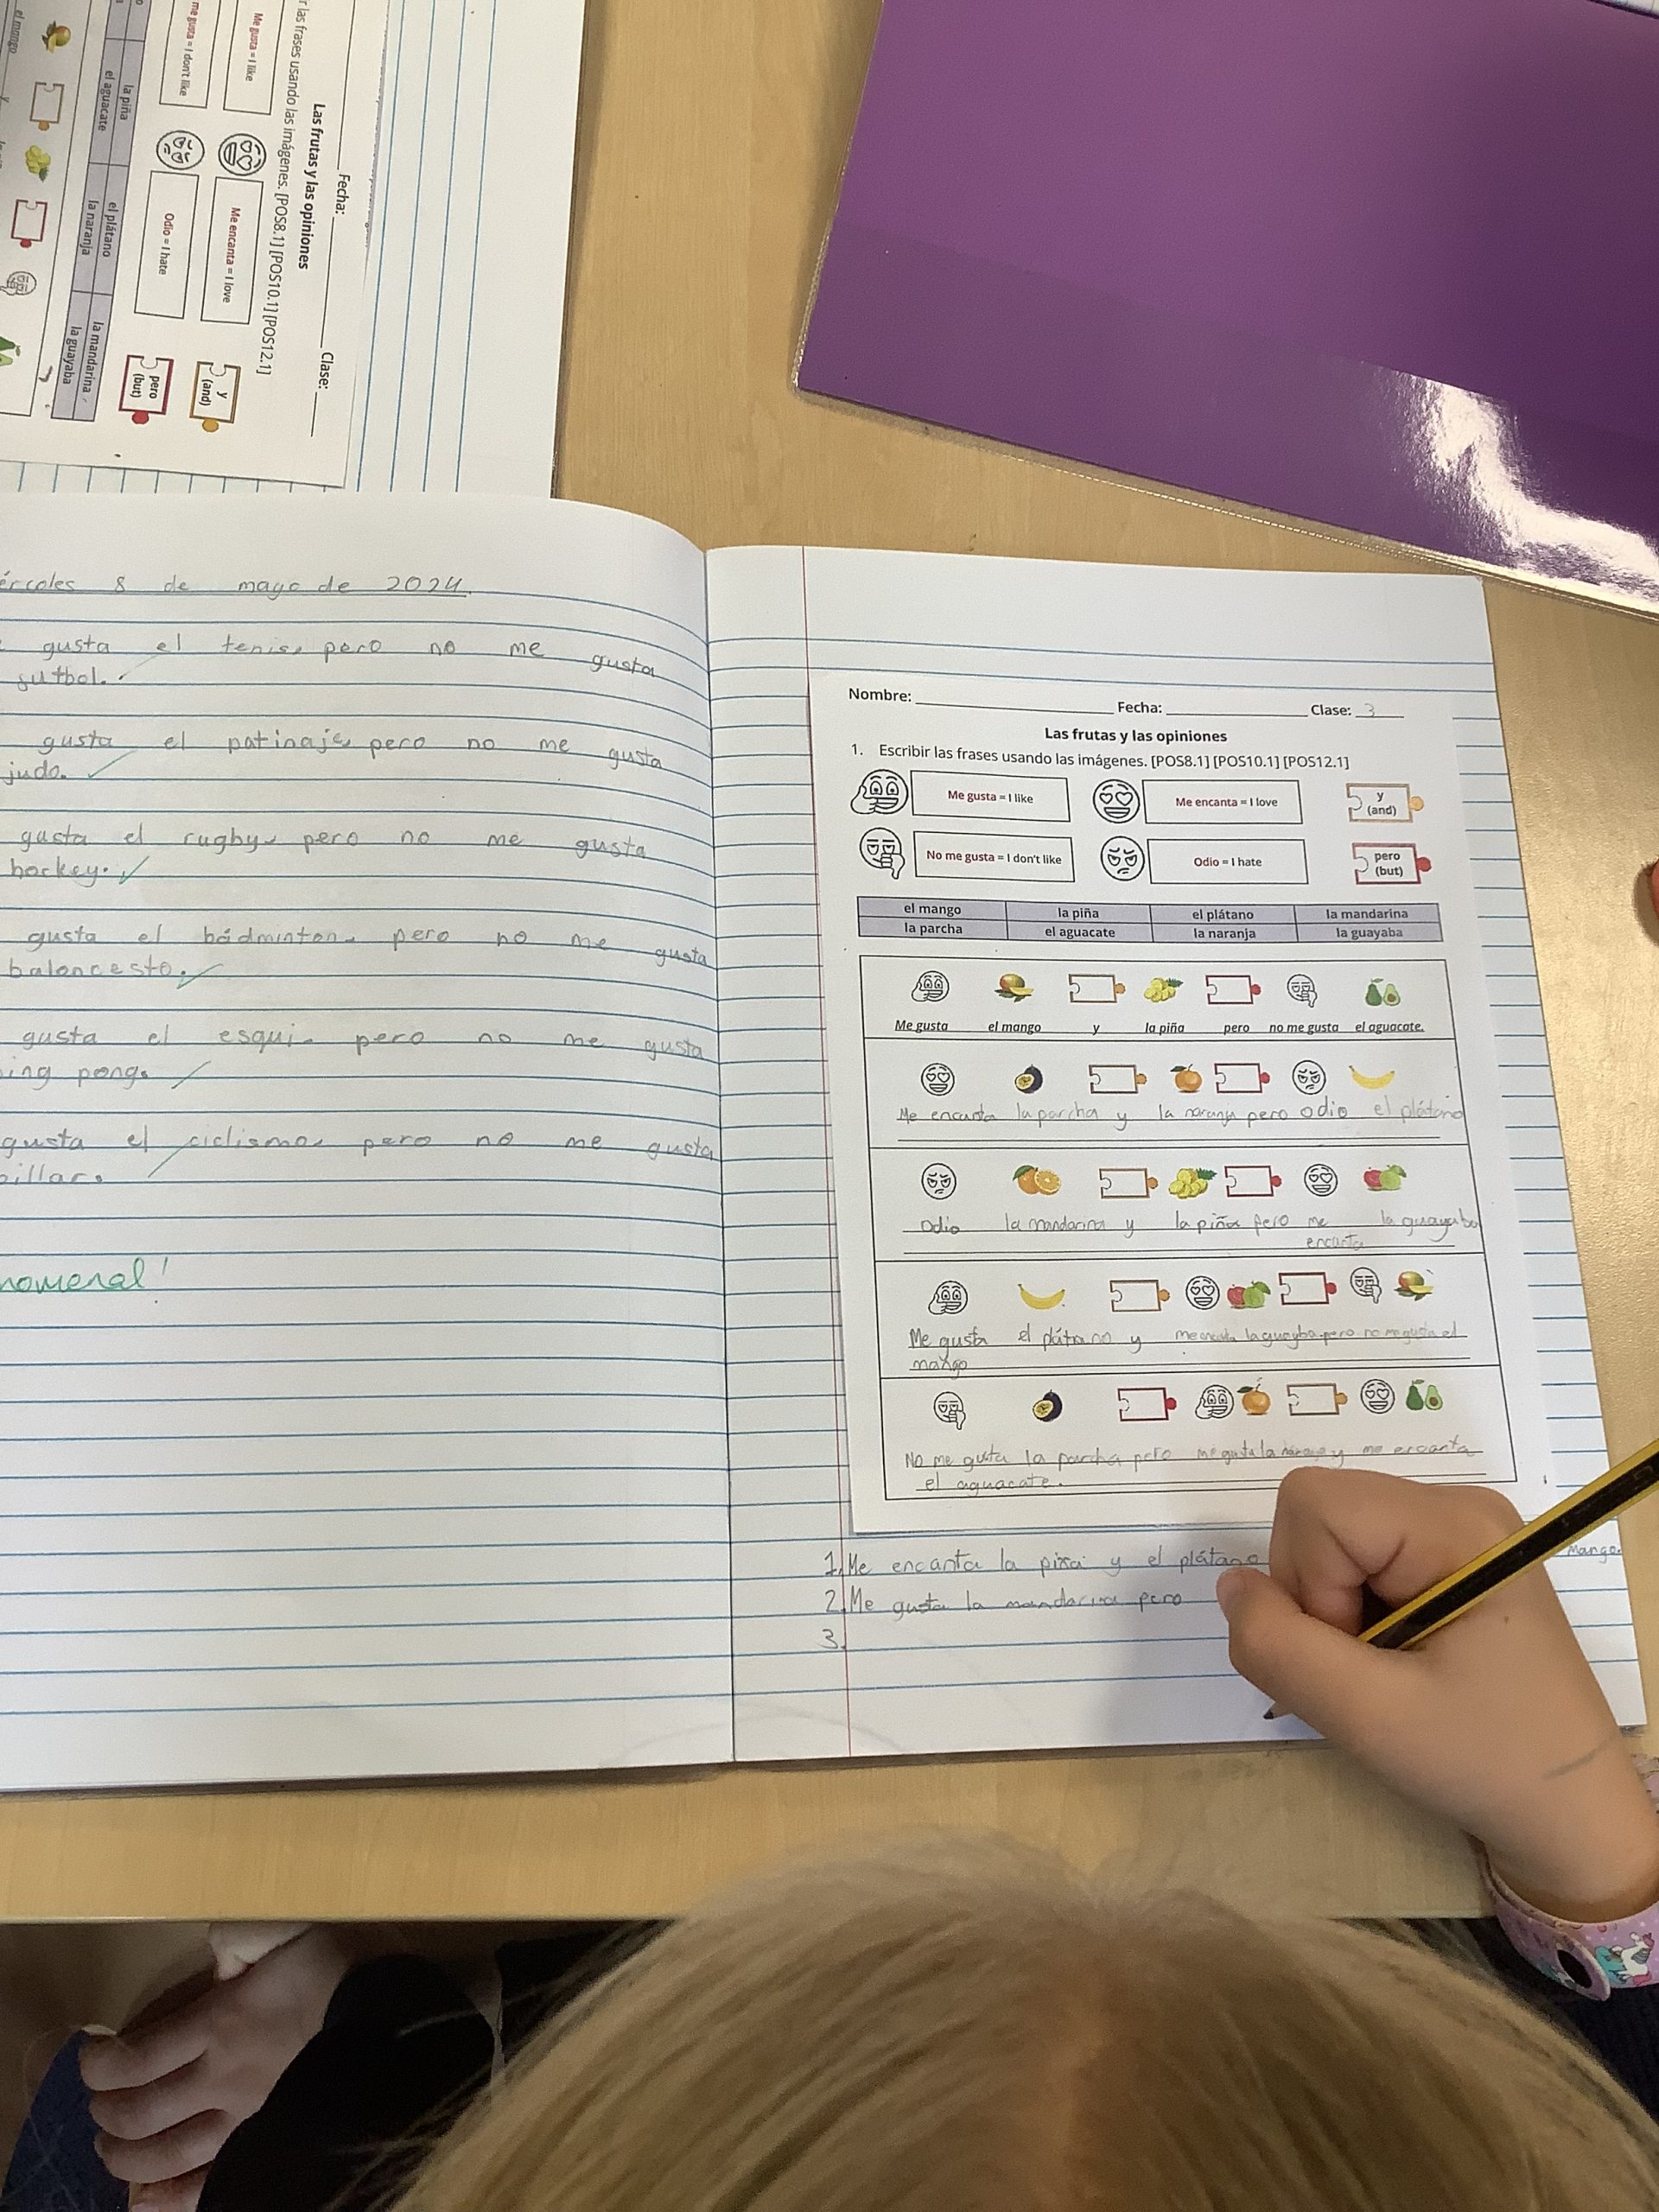 me gusta = I don't like
Me gusta = I like
r las frases usando las imágenes. [POS8.1] [POS10.1] [POS12.1]
Las frutas y las opiniones
Fecha:
Clase:
Odio = I hate
Me encanta = I love
pero
(but)
y
(and)
la piña
el plátano
la mandarina
el aguacate
la naranja
la guayaba
el mango
y
ércoles 8 de mayo de 2024.
gusta el tenis, pero no me gusta
futbol.
gusta el patinaje, pero no me gusta
judo.
gusta el rugby, pero no me gusta
hockey.
gusta el bádminton, pero no me gusta
baloncesto.
gusta el esqui, pero no me gusta
ing pong.
gusta el ciclismo, pero no me gusta
billar.
nomenal!
Nombre: Fecha: Clase: 3
Las frutas y las opiniones
1. Escribir las frases usando las imágenes. [POS8.1] [POS10.1] [POS12.1]
Me gusta = I like
Me encanta = I love
y
(and)
No me gusta = I don't like
Odio = I hate
pero
(but)
el mango la piña el plátano la mandarina
la parcha el aguacate la naranja la guayaba
Me gusta el mango y la piña pero no me gusta el aguacate.
Me encanta la parcha y la naranja pero odio el plátano
Odio la mandarina y la piña pero me la guayaba
encanta
Me gusta el plátano y me encanta la guayba pero no me gusta el
mango
No me gusta la parcha pero me gusta la naranja y me encanta
el aguacate.
1. Me encanta la piña y el plátano Mango.
2. Me gusta la mandarina pero
3.